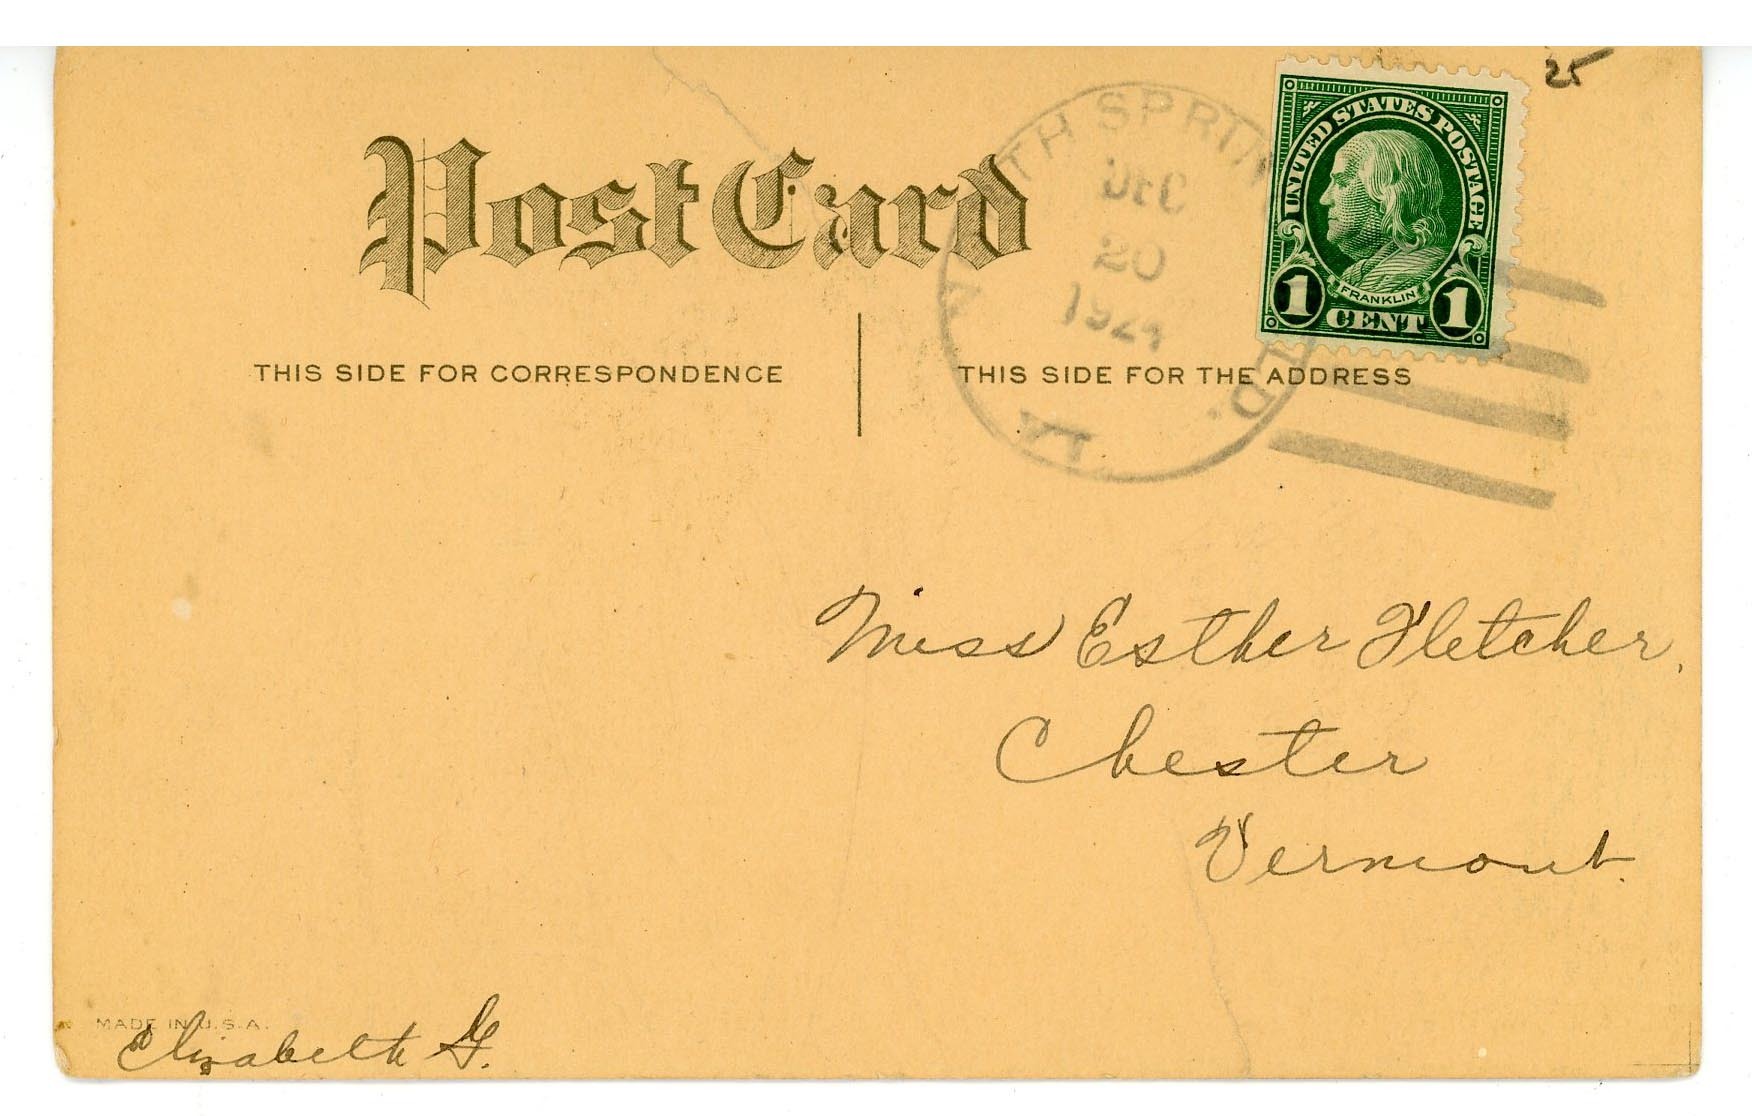 25
Post Card
TH SPRIN
DEC
20
1924
VT.
UNITED STATES POSTAGE
FRANKLIN
1 CENT 1
THIS SIDE FOR CORRESPONDENCE
THIS SIDE FOR THE ADDRESS
Miss Esther Fletcher,
Chester
Vermont.
MADE IN U.S.A.
Elizabeth G.